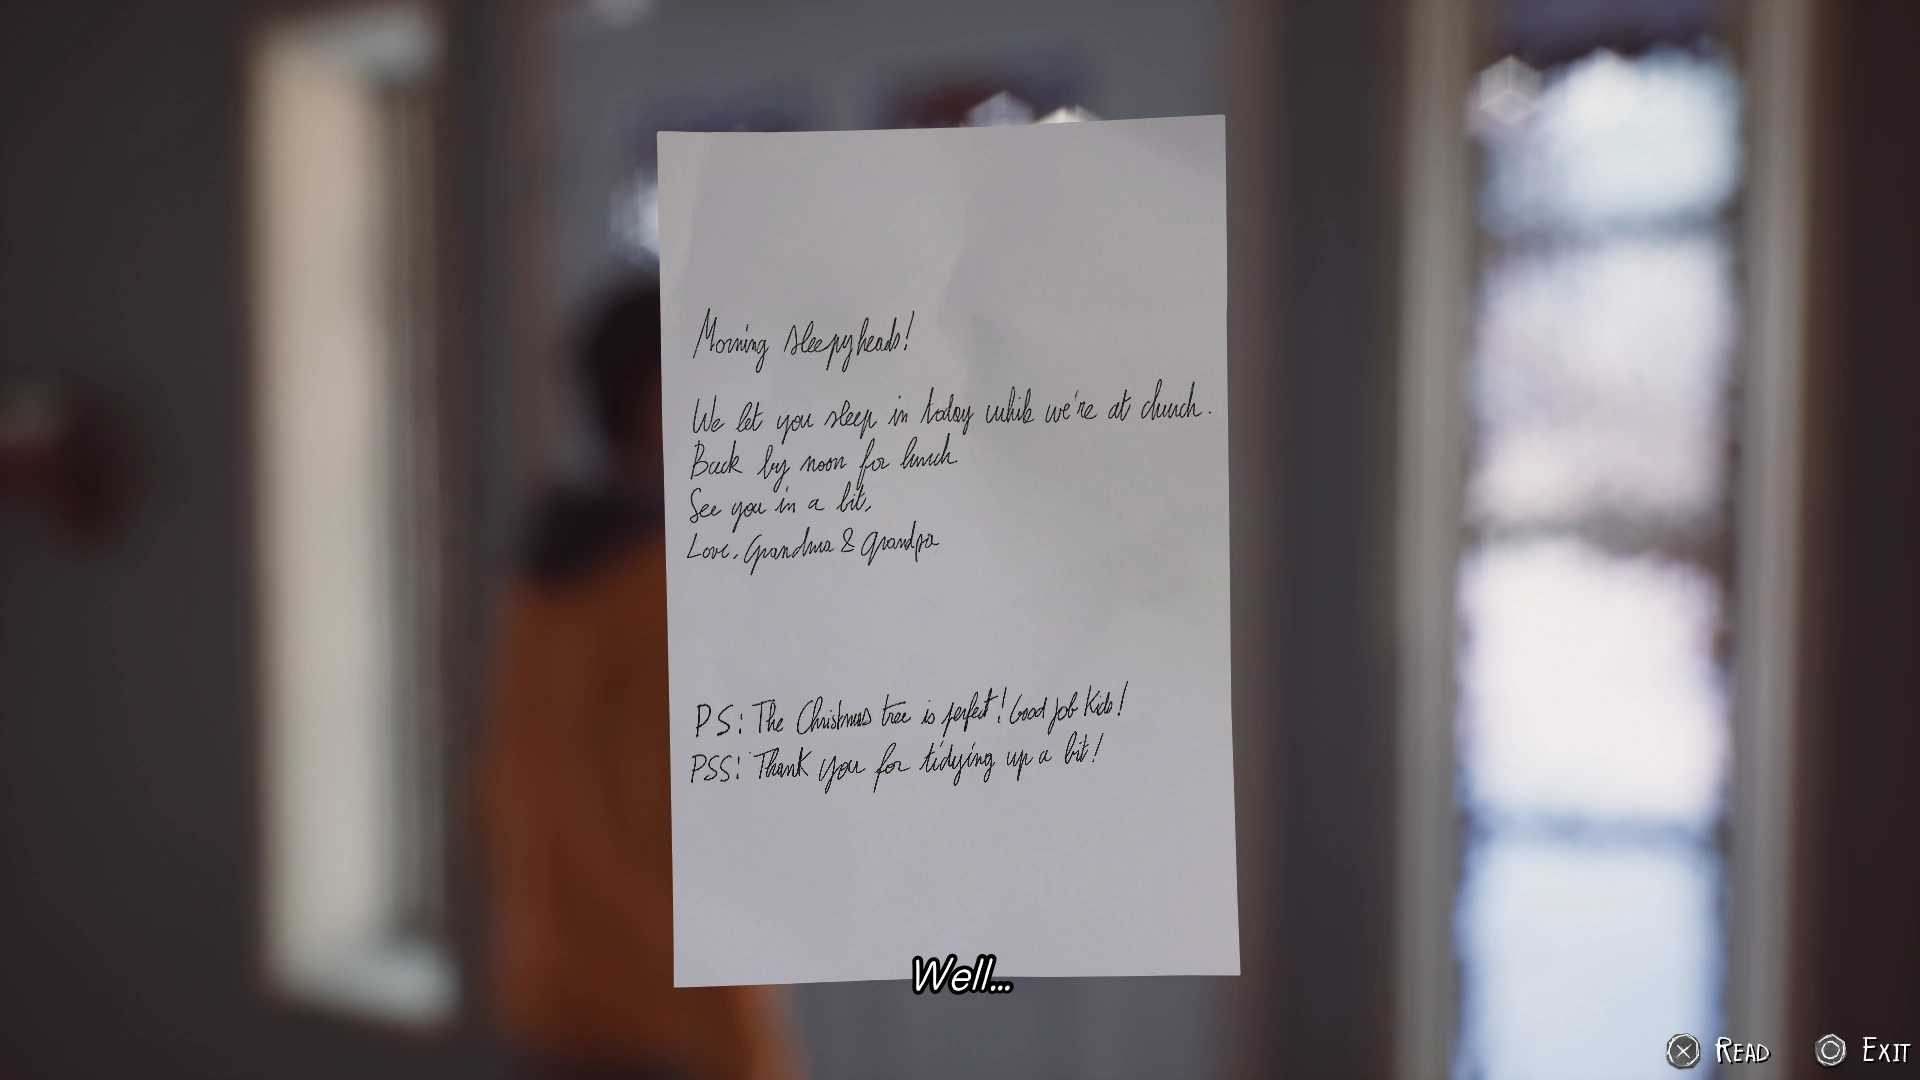 Morning sleepyheads!
We let you sleep in today while we're at church.
Back by noon for lunch
See you in a bit,
Love, Grandma & Grandpa
PS: The Christmas tree is perfect! Good job Kids!
PSS: Thank you for tidying up a bit!
Well...
READ EXIT